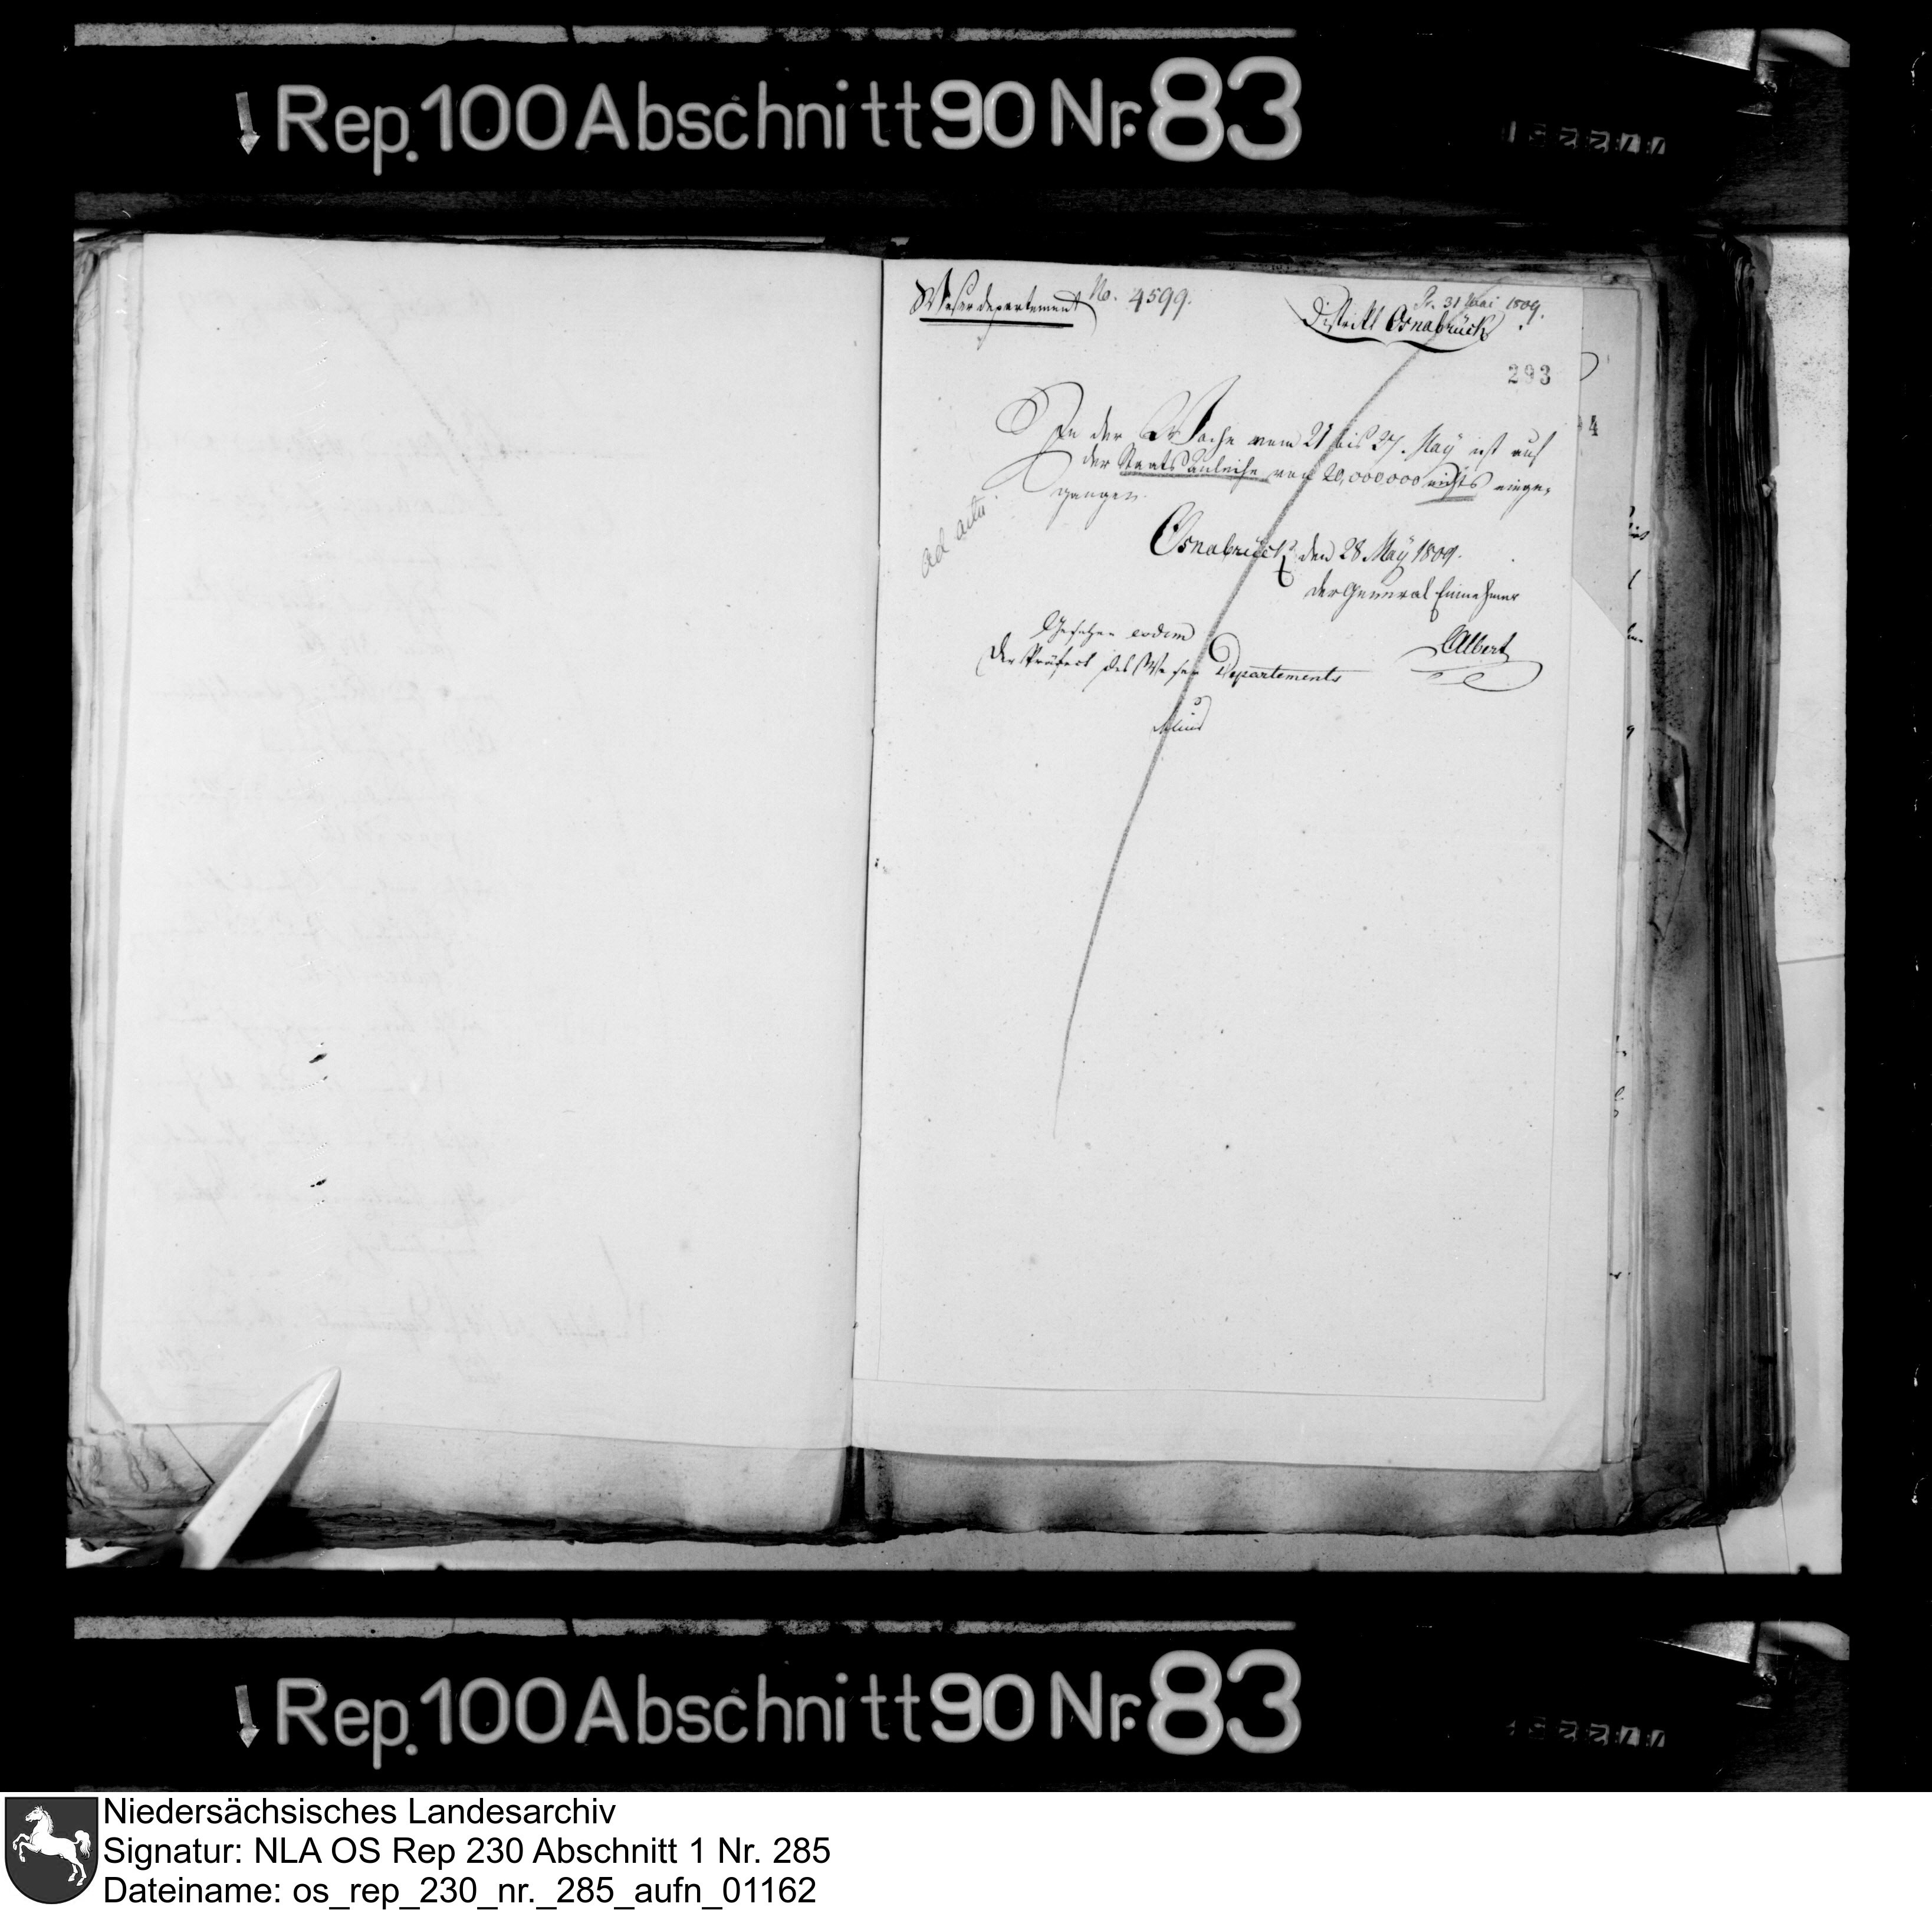 Rep. 100 Abschnitt 90 Nr. 83
Weserdepartement No. 4599.
Pr. 31 Mai 1809.
District Osnabrück
293
In der Woche vom 21 bis 27. May ist auf
der Staatsanleihe von 20,000000 nichts einge-
gangen.
ad acta.
Osnabrück den 28 May 1809.
der General Einnehmer
Gesehen eodem
Albert
Der Präfect des Weser Departements
Rep. 100 Abschnitt 90 Nr. 83
Niedersächsisches Landesarchiv
Signatur: NLA OS Rep 230 Abschnitt 1 Nr. 285
Dateiname: os_rep_230_nr._285_aufn_01162